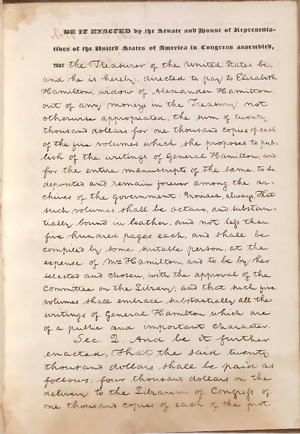 BE IT ENACTED by the Senate and House of Representa-
tives of the United States of America in Congress assembled,
THAT the Treasurer of the United States be,
and he is hereby, directed to pay to Elizabeth
Hamilton, widow of Alexander Hamilton,
out of any money in the Treasury not
otherwise appropriated, the sum of twenty
thousand dollars for one thousand copies of each
of the five volumes which she proposes to pub-
lish of the writings of General Hamilton, and
for the entire manuscript of the same, to be
deposited and remain forever among the ar-
chives of the Government: Provided, always, that
such volumes shall be octavo, and substan-
tially bound in leather, and not less than
five hundred pages each, and shall be
compiled by some suitable person, at the
expense of Mrs Hamilton, and to be by her
selected and chosen, with the approval of the
Committee on the Library; and that such five
volumes shall embrace, substantially, all the
writings of General Hamilton which are
of a public and important character.
Sec. 2. And be it further
enacted, That the said twenty
thousand dollars shall be paid as
follows: four thousand dollars on the
delivery to the Librarian of Congress of
one thousand copies of each of the first